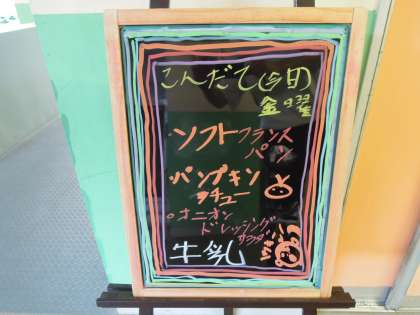 こんだて
金
・ソフトフランス
パン
・パンプキン
シチュー
・オニオン
ドレッシング
サラダ
牛乳